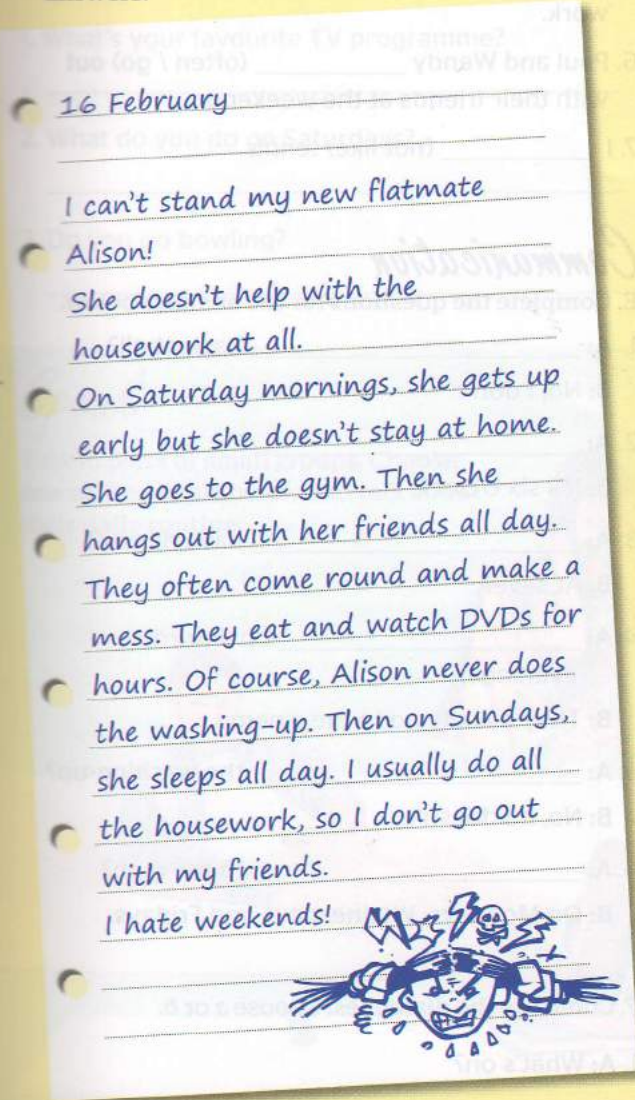 16 February
I can't stand my new flatmate
Alison!
She doesn't help with the
housework at all.
On Saturday mornings, she gets up
early but she doesn't stay at home.
She goes to the gym. Then she
hangs out with her friends all day.
They often come round and make a
mess. They eat and watch DVDs for
hours. Of course, Alison never does
the washing-up. Then on Sundays,
she sleeps all day. I usually do all
the housework, so I don't go out
with my friends.
I hate weekends!